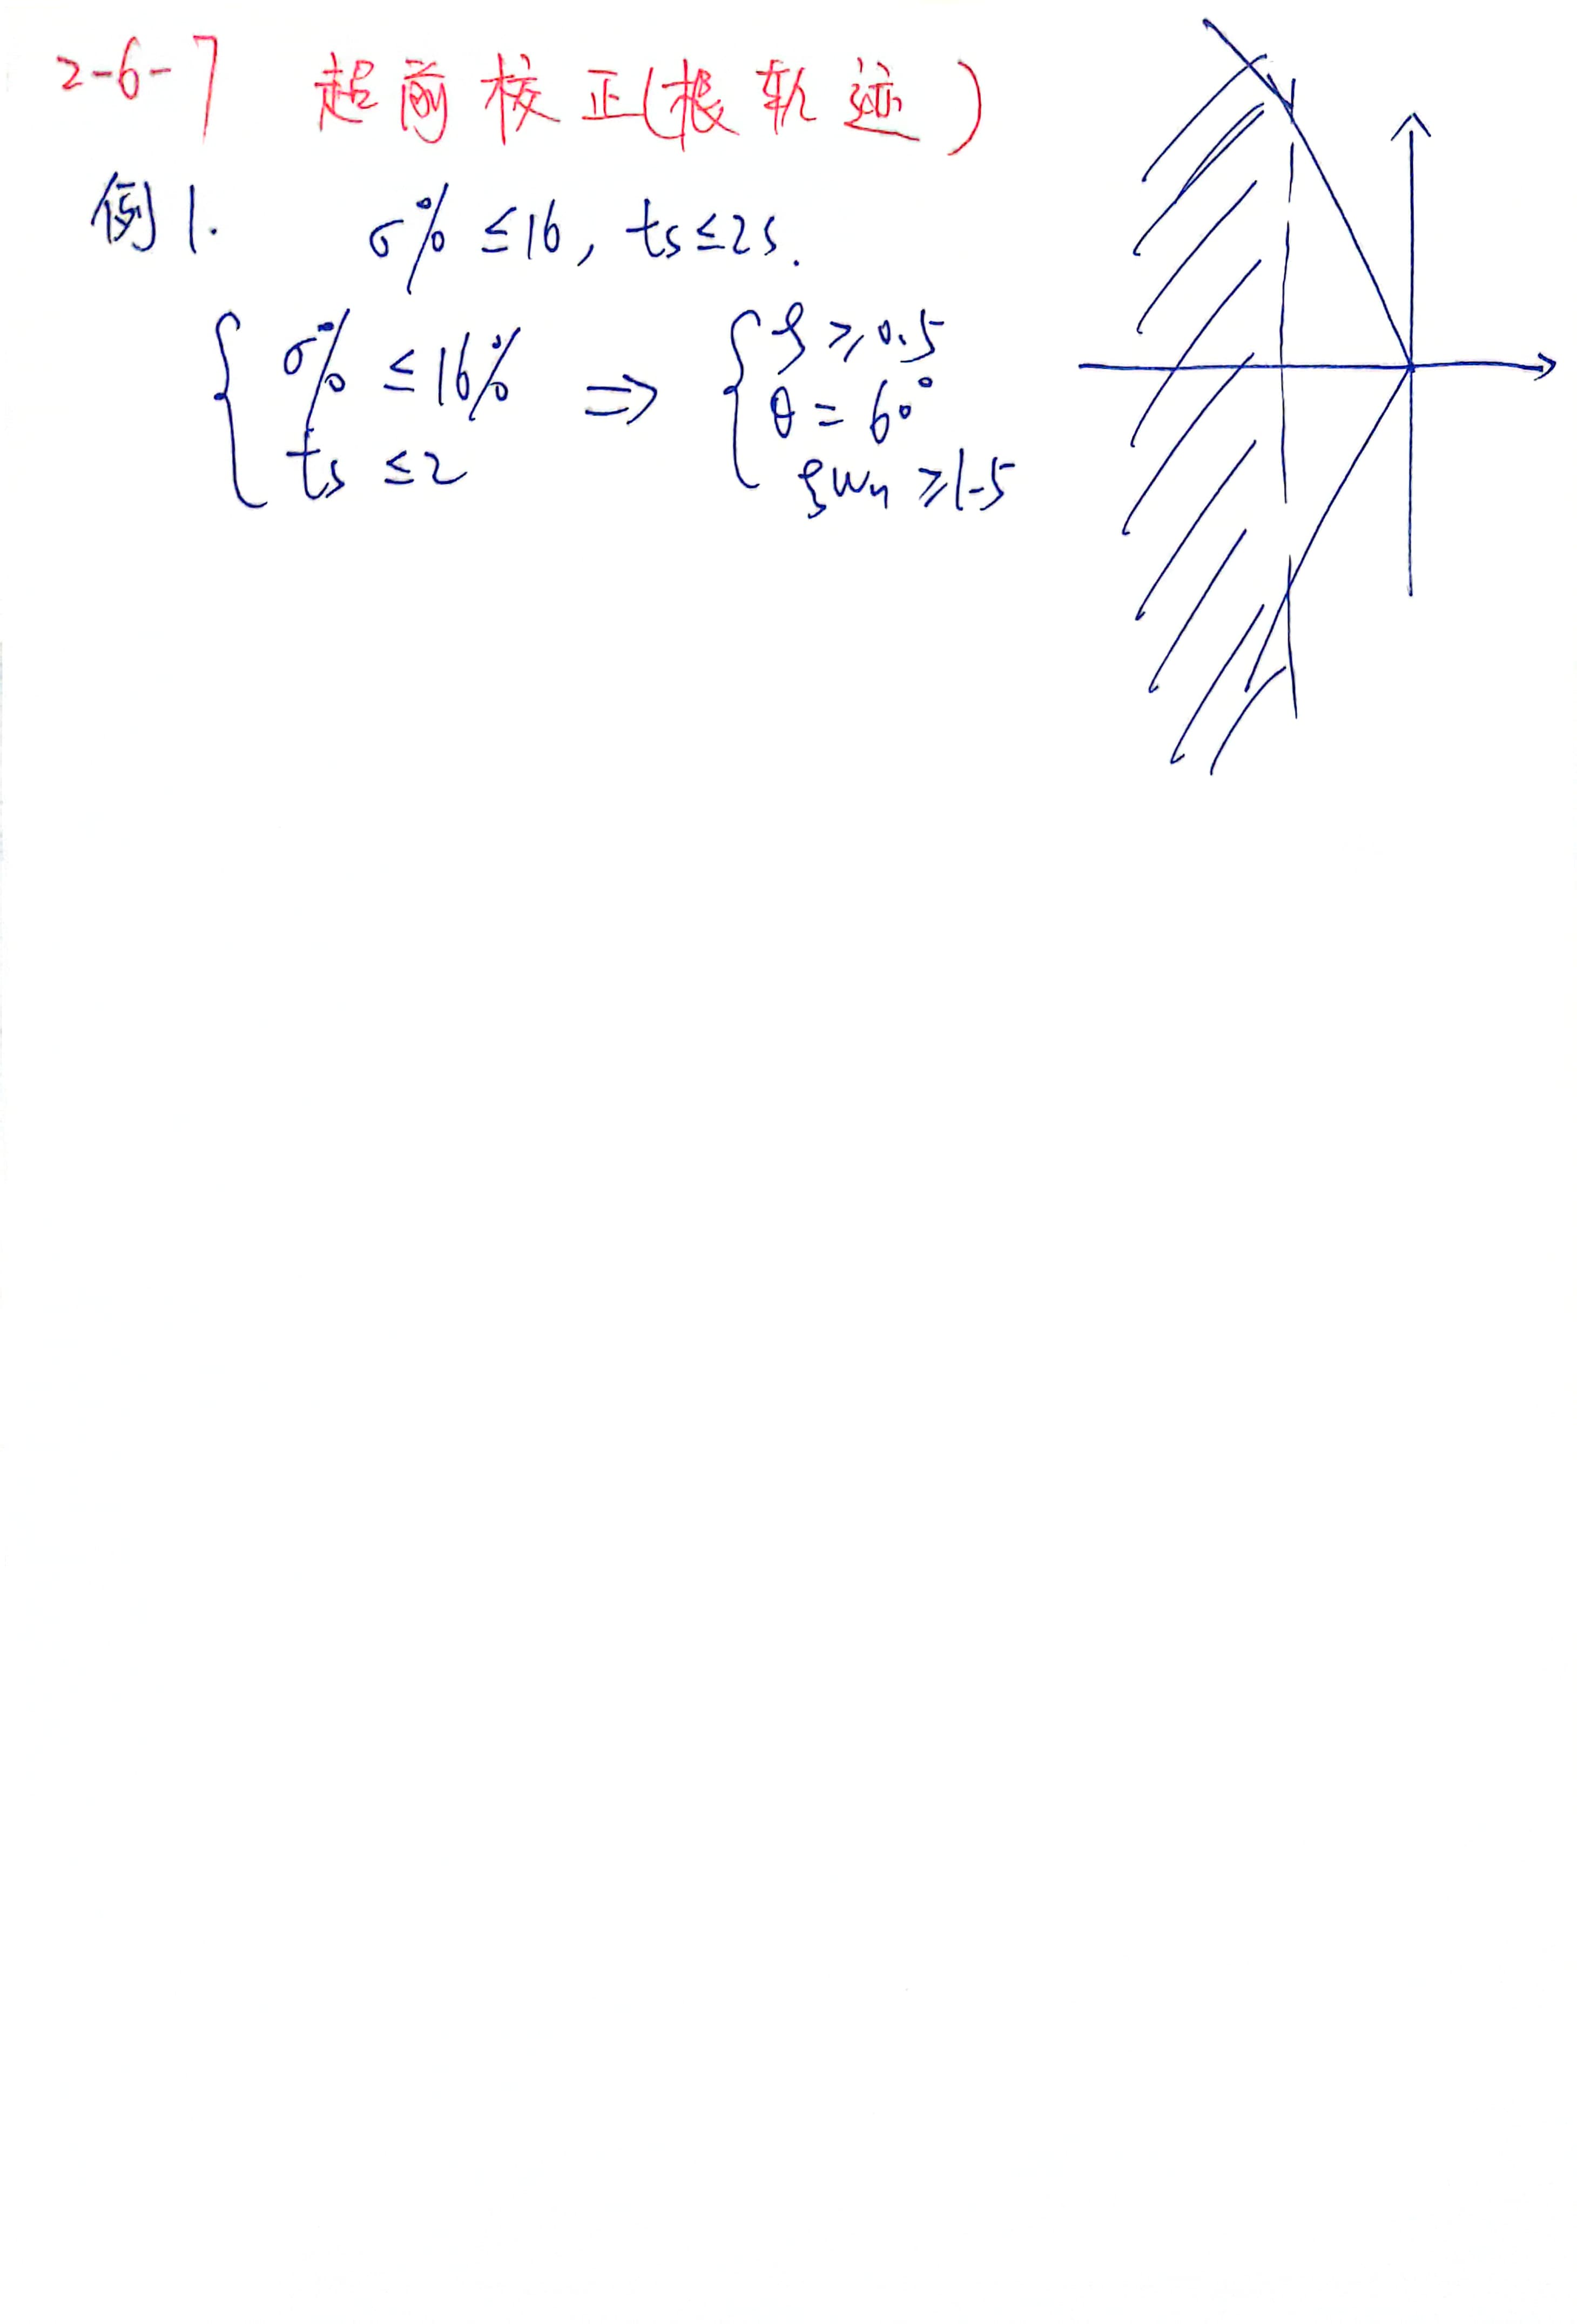 2-6-7 超前校正(根轨迹)
例1. σ% ≤16, ts≤2s.
{ σ% ≤16% ⇒ { ξ ≥ 0.5
θ = 60°
ts ≤2 ξωn ≥1.5